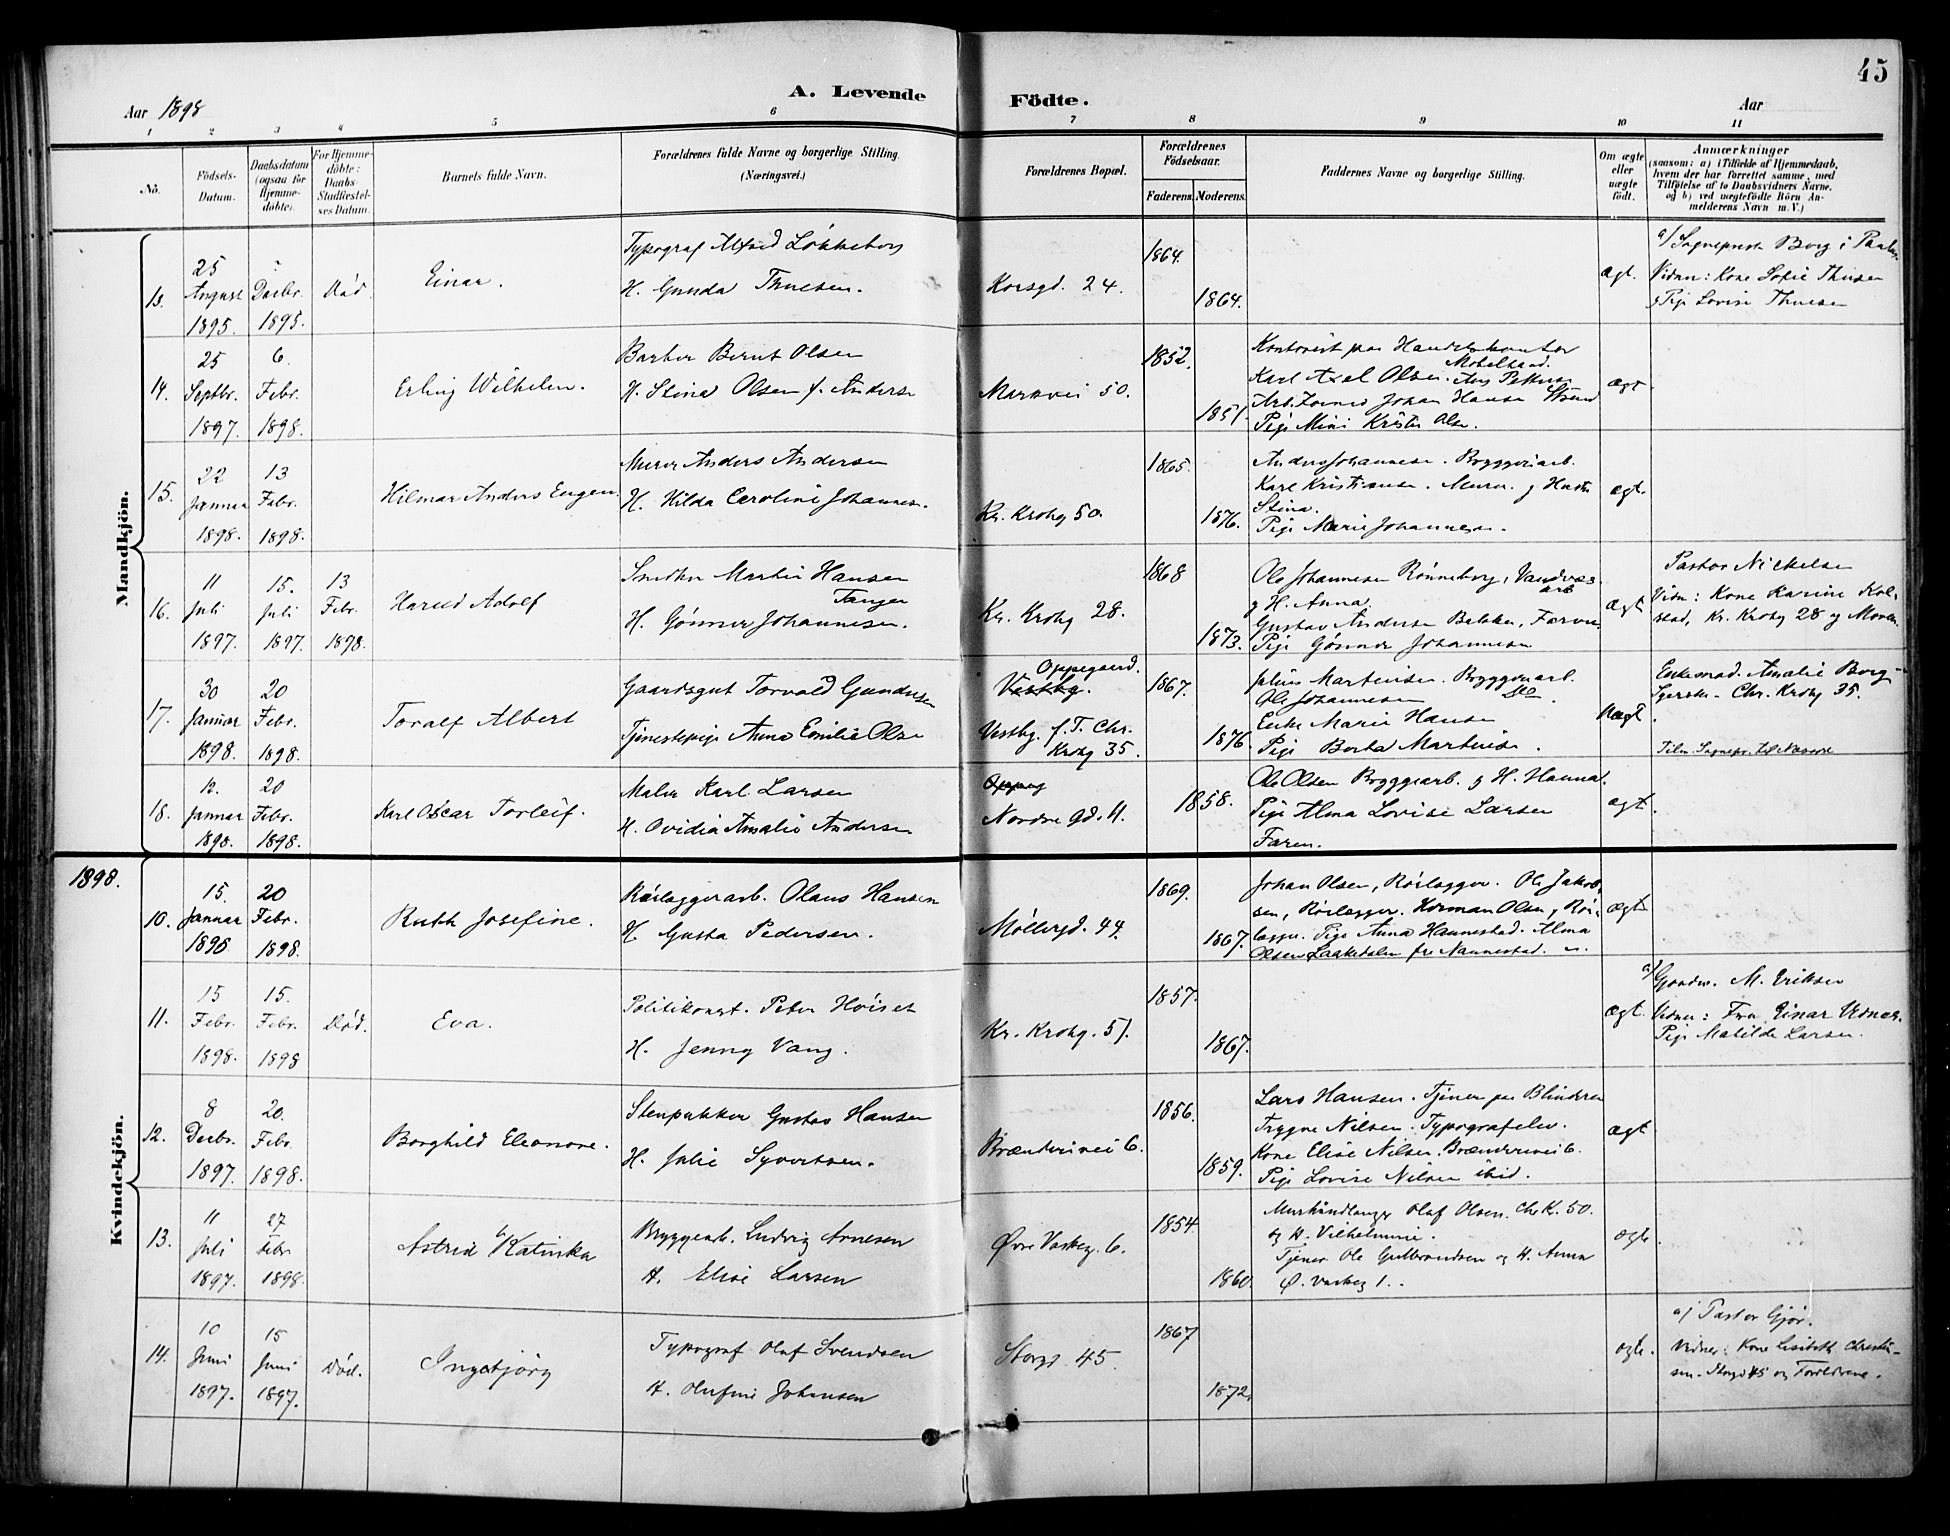 45
A. Levende Födte.
Aar 1898
Aar
1 2 3 4 5 6 7 8 9 10 11
No.
Födsels-Datum.
Daabsdatum (ogsaa for Hjemme-döbte).
For Hjemme-döbte: Daabs-Stadfæstel-ses Datum.
Barnets fulde Navn.
Forældrenes fulde Navne og borgerlige Stilling. (Næringsvei.)
Forældrenes Bopæl.
Forældrenes Födselsaar.
Faderens.
Moderens.
Faddernes Navne og borgerlige Stilling.
Om ægte eller uægte födt.
Anmærkninger
(saasom: a) i Tilfælde af Hjemmedaab,
hvem der har forrettet samme, med
Tilföielse af to Daabsvidners Navne,
og b) ved uægtefödte Börn An-
melderens Navn m. V.)
Mandkjön.
13. 25 August 1895. ? Decbr. 1895. Död.
Einar.
Typograf Alfred Løkkeberg
H. Gunda Thuesen.
Korsgd. 24.
1864. 1864.
ægt.
a/ Sogneprest Borg i
Vidner: Kone Sofie Thuesen
g Pige Lovise Thuesen
14. 25 Septbr. 1897. 6. Febr. 1898.
Erling Wilhelm.
Barber Bernt Olsen
H. Stina Olsen f. Anderse
Markvei 50.
1852. 1851.
Kontorist paa Handelskontor
Karl Axel Olsen.
Johan Hansen
Pige Mini Olsen.
ægt.
15. 22 Januar 1898. 13 Febr. 1898.
Hilmar Anders Eugen.
Murer Anders Andersen
H. Hilda Caroline Johannesen.
Kr. Krohg 50.
1865. 1876.
Anders Johannesen. Bryggeriarb.
Karl Kristiansen. Murer. g Hustr
Stina.
Pige Marie Johannesen.
ægt.
16. 11 Juli 1897. 15. Juli 1897. 13 Febr. 1898.
Harald Adolf
Snedker Martin Hansen
Tangen
H. Gønner Johannesen.
Kr. Krohg 28.
1868 1873.
Ole Johannesen Rønneberg, Vandvæs.
arb
g H. Anna.
Gustav Andersen Bekken, Farver
Pige Gønner Johannesen
ægt.
Pastor Nickelsen
Vidn: Kone Karine Kol-
stad, Kr. Krohg 28 g Moren.
17. 30 Januar 1898. 20 Febr. 1898.
Toralf Albert
Gaardsgut Torvald Gundersen
Tjenestepige Anna Emilie Olsen
Oppegaard.
Vestby.
Vestby. f. T. Chr.
Krohg 35.
1867. 1876.
Julius Martinsen. Bryggeriarb.
Ole Johannesen Do.
Enke Marie Hansen
Pige Berta Martinsen.
Uægt.
Enkemad. Amalie Borg-
Chr. Krohg 35.
18. 12. Januar 1898. 20 Febr. 1898.
Karl Oscar Torleif.
Maler Karl Larsen
H. Ovidia Amalie Andersen
Nordre gd. 11.
1858.
Ole Olsen Bryggeriarb. g H. Hanna.
Pige Alma Lovise Larsen
Faren.
ægt.
1898.
Kvindekjön.
10. 15. Januar 1898 20 Febr. 1898.
Ruth Josefine.
Rørlæggerarb. Olaus Hansen
H. Gusta Pedersen.
Møllergd. 44.
1869. 1867.
Johan Olsen, Rørlægger. Ole Jakob-
sen, Rørlægger. Herman Olsen, Rør-
lægger. Pige Anna Hannestad. Alma
Olsen fra Nannestad.
ægt.
11. 15 Febr. 1898. 15. Febr. 1898 Död.
Eva.
Politikonst. Peter Høiset
H. Jenny Vang.
Kr. Krohg. 51.
1857. 1867.
ægt.
a/ Gjordm. M. Eriksen
Vidner: Fru Einar
Pige Matilde Larsen.
12. 8 Decbr. 1897. 20. Febr. 1898.
Borghild Eleonore.
Stenpukker Gustav Hansen
H. Julie Syvertsen.
Brænderivei 6.
1856. 1859.
Lars Hansen. Tjener paa Blindern
Trygve Nilsen. Typografelev.
Kone Elise Nilsen. Brænderivei 6.
Pige Lovise Nilsen ibid.
ægt
13. 11 Juli 1897. 27 Febr 1898.
Astrid Katinka
Bryggearb. Ludvig Arnesen
H. Elise Larsen
Øvre Vaskeg. 6.
1854. 1860.
Murhåndlanger Olaf Olsen. Chr K. 50.
og H. Vilhelmine.
Tjener Ole Gulbrandsen og H. Anna
Ø. Vaskeg 1.
ægte.
14. 10 Juni 1897. 15 Juni 1897. Död.
Ingebjörg
Typograf Olaf Svendsen
H. Olufine Johansen
Storgd. 45.
1867 1872.
ægte.
a) Pastor Gjør.
Vidner: Kone Lisibeth Christen-
sen. Storgd 45 og Forældrene.